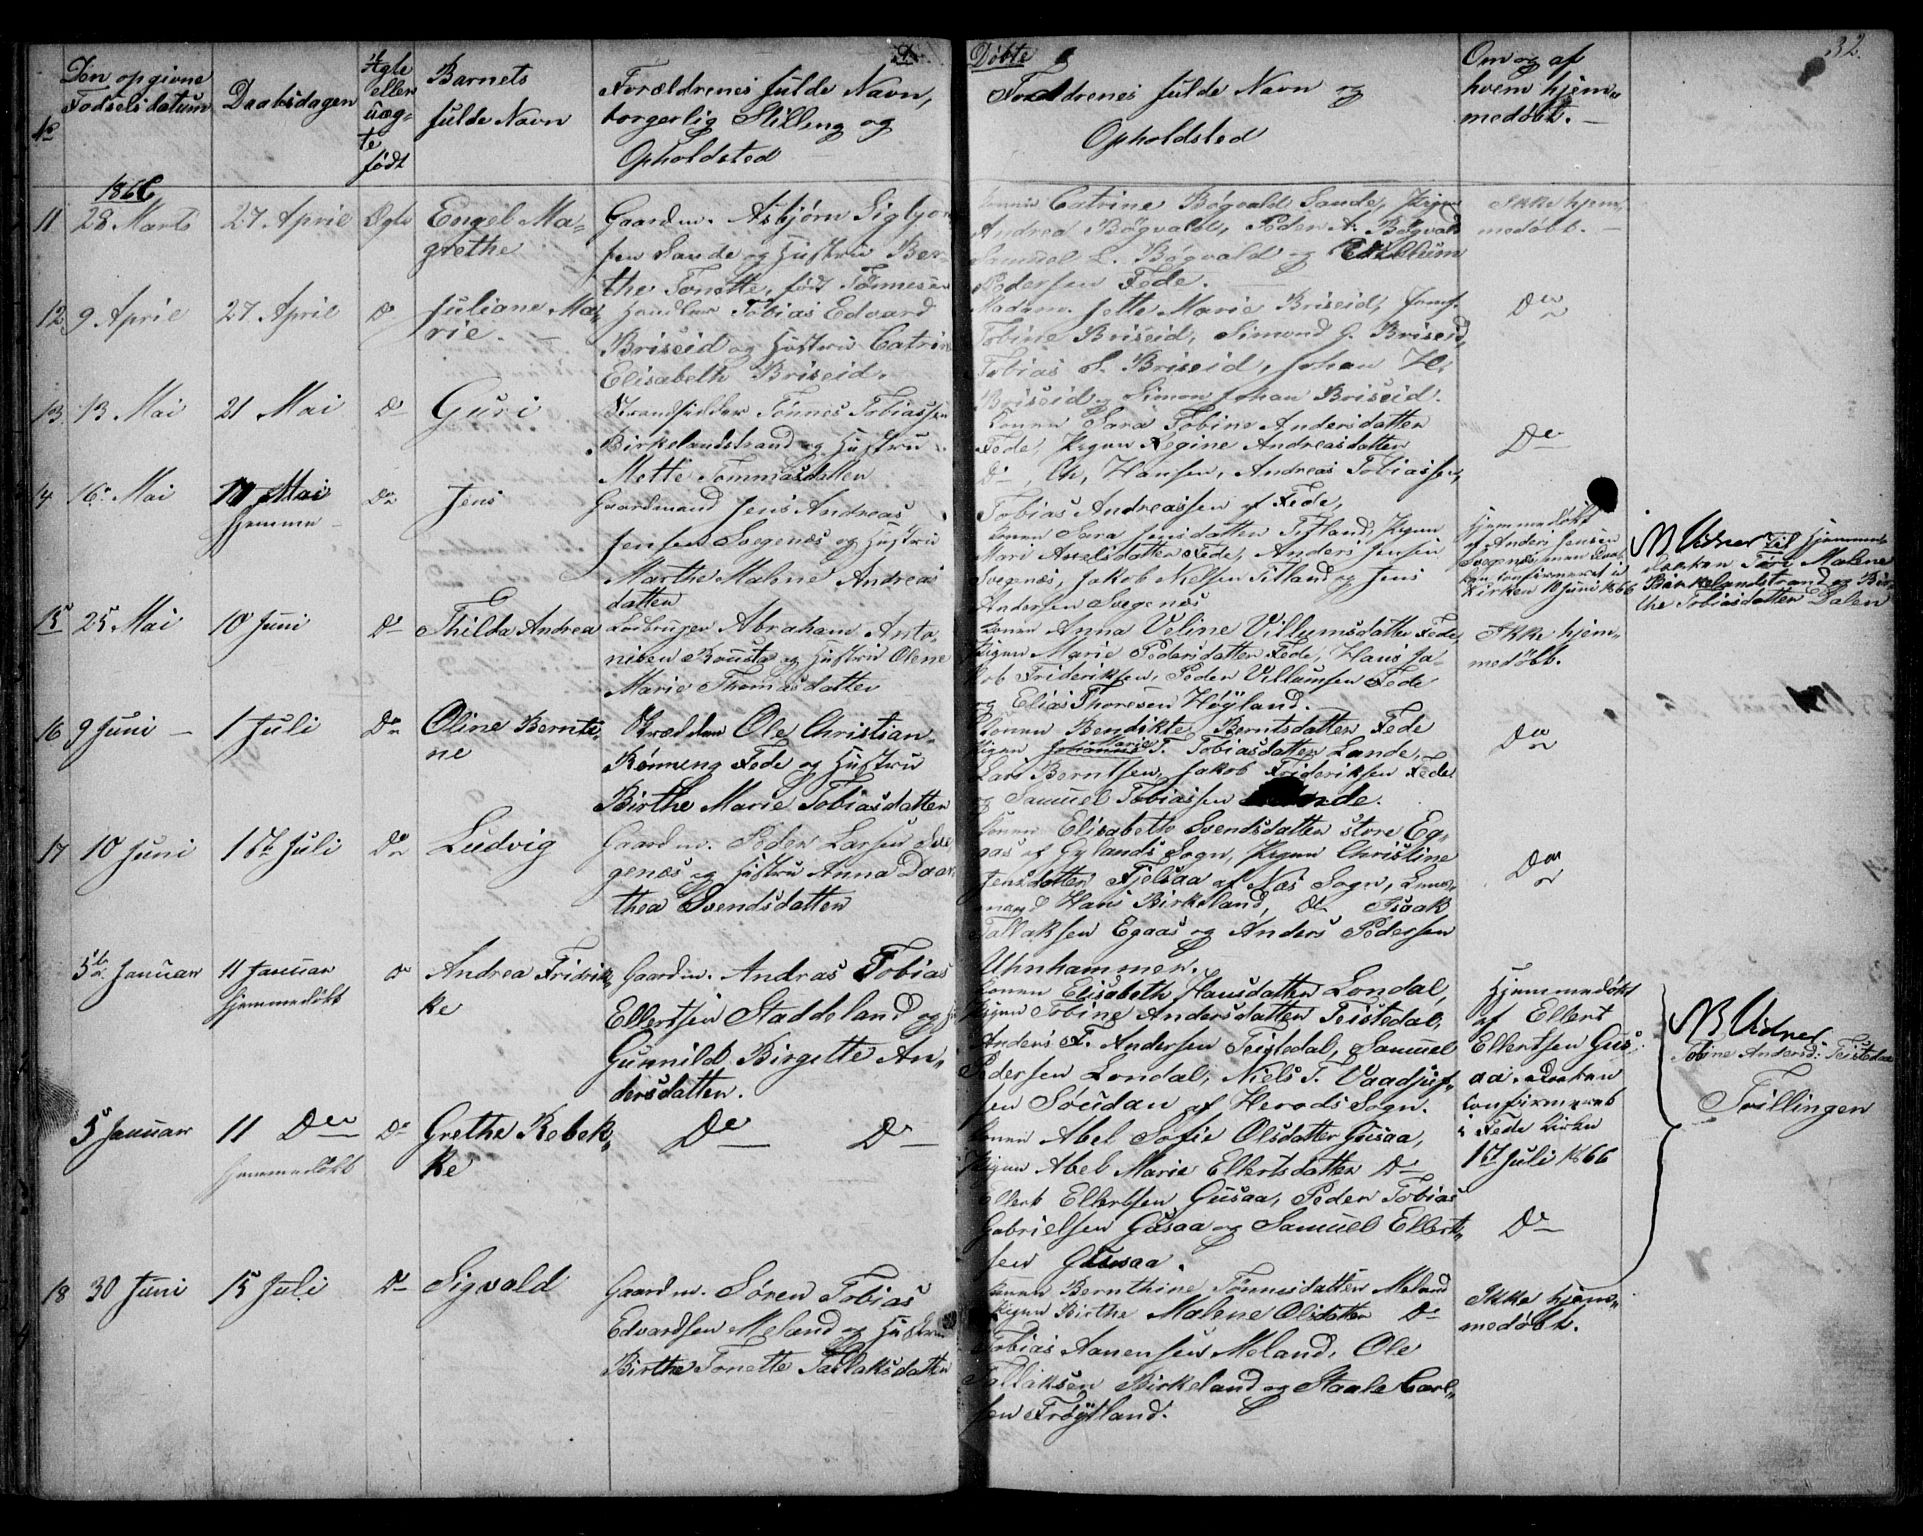 Døbte
32
No
Den opgivne
Fødselsdatum
Daabsdagen
Ægte
eller
uæg-
te
født
Barnets
fulde Navn
Forældrenes fulde Navn,
borgerlig Stilling og
Opholdsted
Fadrenes fulde Navn og
Opholdsted
Om og af
hvem hjem-
medøbt.
1866
11 28 Marts 27 April Ægte Engel Ma-
grethe
Gaardm. Asbjørn Siglyo
sen Sande og Hustru Ber-
the Tonette, født Tønnesen
Konen Catrine Bøgvald Sande, Pigen
Andrea Bøgvald, Peder A. Bøgvald
Samuel L. Bøgvald og
Pedersen Fede.
Ikke hjem-
medøbt.
12 9 April 27 April Do Juliane Ma-
rie.
Handler Tobias Edvard
Briseid og Hustru Catrine
Elisabeth Briseid.
Madam. Jette Marie Briseid, Jomf.
Tobine Briseid, Simond G. Briseid,
Tobias S. Briseid, Johan H.
Briseid og Simon Johan Briseid.
Do
13 13 Mai 21 Mai Do Guri
Strandsidder Tønnes Tobiassen
Birkelandstrand og Hustru
Mette Tommasdatter
Konen Sara Tobine Andersdatter
Fede, Pigen Regine Andreasdatter
Do, Ch. Hansen, Andreas Tobiassen,
Tobias Andreassen af Fede,
Do
14 16 Mai Mai
Hjemme
Do Jens
Gaardmand Jens Andreas
Jensen Svegenæs og Hustru
Marthe Malene Andreas
datter
Konen Sara Jensdatter Titland, Pigen
Mari Axelsdatter Fede, Anders Jensen
Svegenæs, Jakob Nielsen Titland og Jens
Andersen Svegenæs
Hjemmedøbt
af Anders Jensen
Svegenæs men Daa-
ben confirmeret i
Kirken 10 Juni 1866
NB Vidner til hjemme-
daaben Tøri Malene
Birkelandstrand og Bir-
the Tobiasdatter Dalen
15 25 Mai 10 Juni Do Thilda Andrea
Leibruger Abraham Anto
nisen Rousta og Hustru Olene
Marie Thomasdatter
Konen Anna Veline Villumsdatter Fede
Pigen Marie Pedersdatter Fede, Hans Ja-
kob Frideriksen, Peder Villumsen Fede
og Elias Thoresen Høyland.
Ikke hjem-
medøbt.
16 9 Juni 1 Juli Do Oline Bernti-
ne
Skrædder Ole Christian
Rønning Fede og Hustru
Birthe Marie Tobiasdatter
Konen Bendikte Berntsdatter Fede
Pigen Marie T. Tobiasdatter Lande,
Lars Berntsen, Jakob Frideriksen Fede
og Samuel Tobiassen
Do
17 10 Juni 1ste Juli Do Ludvig
Gaardm. Peder Larsen Sve
genæs og Hustru Anna Daar
thea Svendsdatter
Konen Elisabeth Svendsdatter store Eg-
gas af Gylands Sogn, Pigen Christine
Jensdatter Fjelsaa af Næs Sogn, Lens-
mand Hans Birkeland, Do Isaak
Tallaksen Egaas og Anders Pedersen
Uhnhammer.
Do
5te Januar 11 Januar
Hjemmedøbt
Do Andrea Fridrik-
ke
Gaardm. Andras Tobias
Ellertsen Staddeland og Hu
Gunnild Birgette An-
dersdatter.
Konen Elisabeth Hansdatter Londal,
Pigen Tobine Andersdatter Teistedal,
Anders F. Andersen Teistedal, Samuel
Pedersen Londal, Niels T. Vaadjuf-
sen Soudan af Herods Sogn.
Hjemmedøbt
af Ellert
Ellertsen Gus-
aa. Daaben
confirmeret
i Fede Kirke
1ste Juli 1866
NB Vidner.
Tobine Andersd: Teistedal
Tvillingen
5 Januar 11 Do
Hjemmedøbt
Do Grethe Rebek-
ke
Do Do
Konen Abel Sofie Olsdatter Gusaa,
Pigen Abel Marie Ellertsdatter Do
Ellert Ellertsen Gusaa, Peder Tobias
Gabrielsen Gusaa og Samuel Ellert-
sen Gusaa.
Do
18 30 Juni 15 Juli Do Sigvald
Gaardm. Søren Tobias
Edvardsen Meland og Hustru
Birthe Tonette Tallaksdatter
Konen Bernthine Tønnesdatter Meland
Pigen Birthe Malene Olsdatter Do
Tobias Aanensen Meland, Ole
Tallaksen Birkeland og Staale Carl-
sen Frøytland.
Ikke hjem-
medøbt.